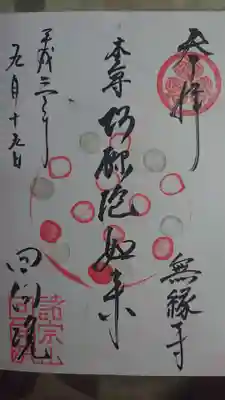 奉拝
無縁寺
本尊 阿弥陀如来
平成三十年
九月十五日
回向院
諸宗山